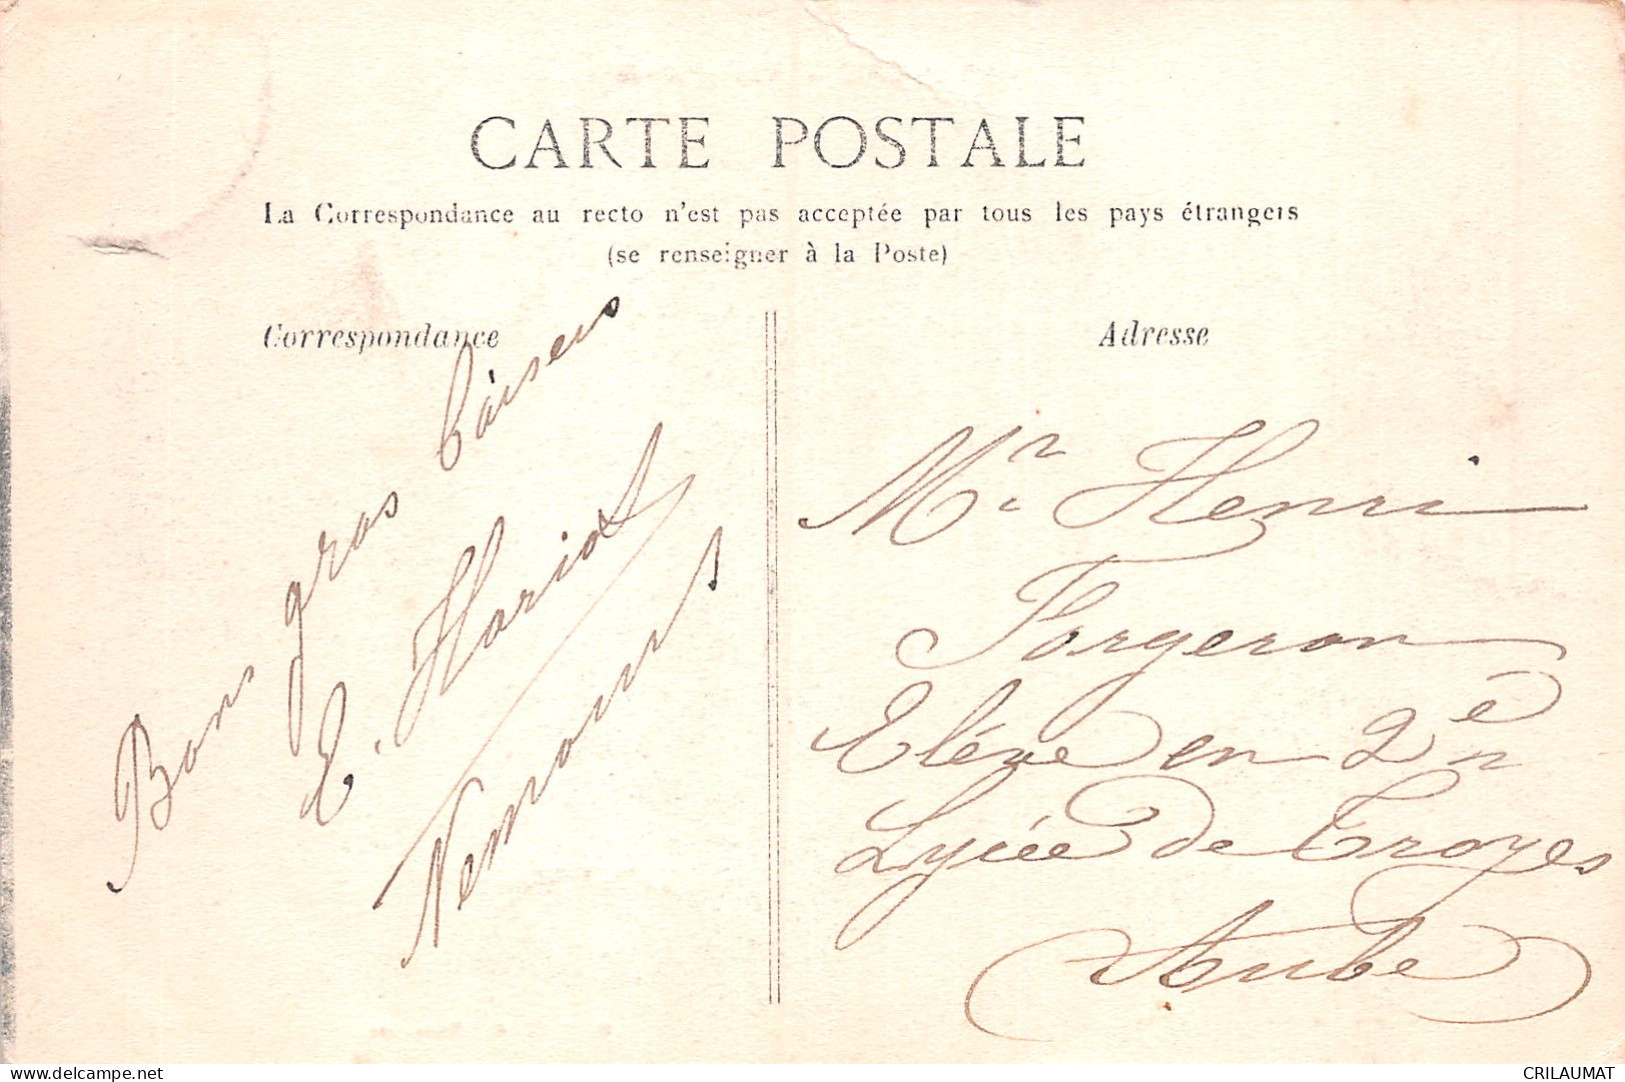 CARTE POSTALE
La Correspondance au recto n'est pas acceptée par tous les pays étrangers
(se renseigner à la Poste)
Correspondance
Bons gros baisers
E. Hariot
Nemours
Adresse
Mr Henri
Forgeron
Elève en 2e
Lycée de Troyes
Aube
www.delcampe.net
CRILAUMAT